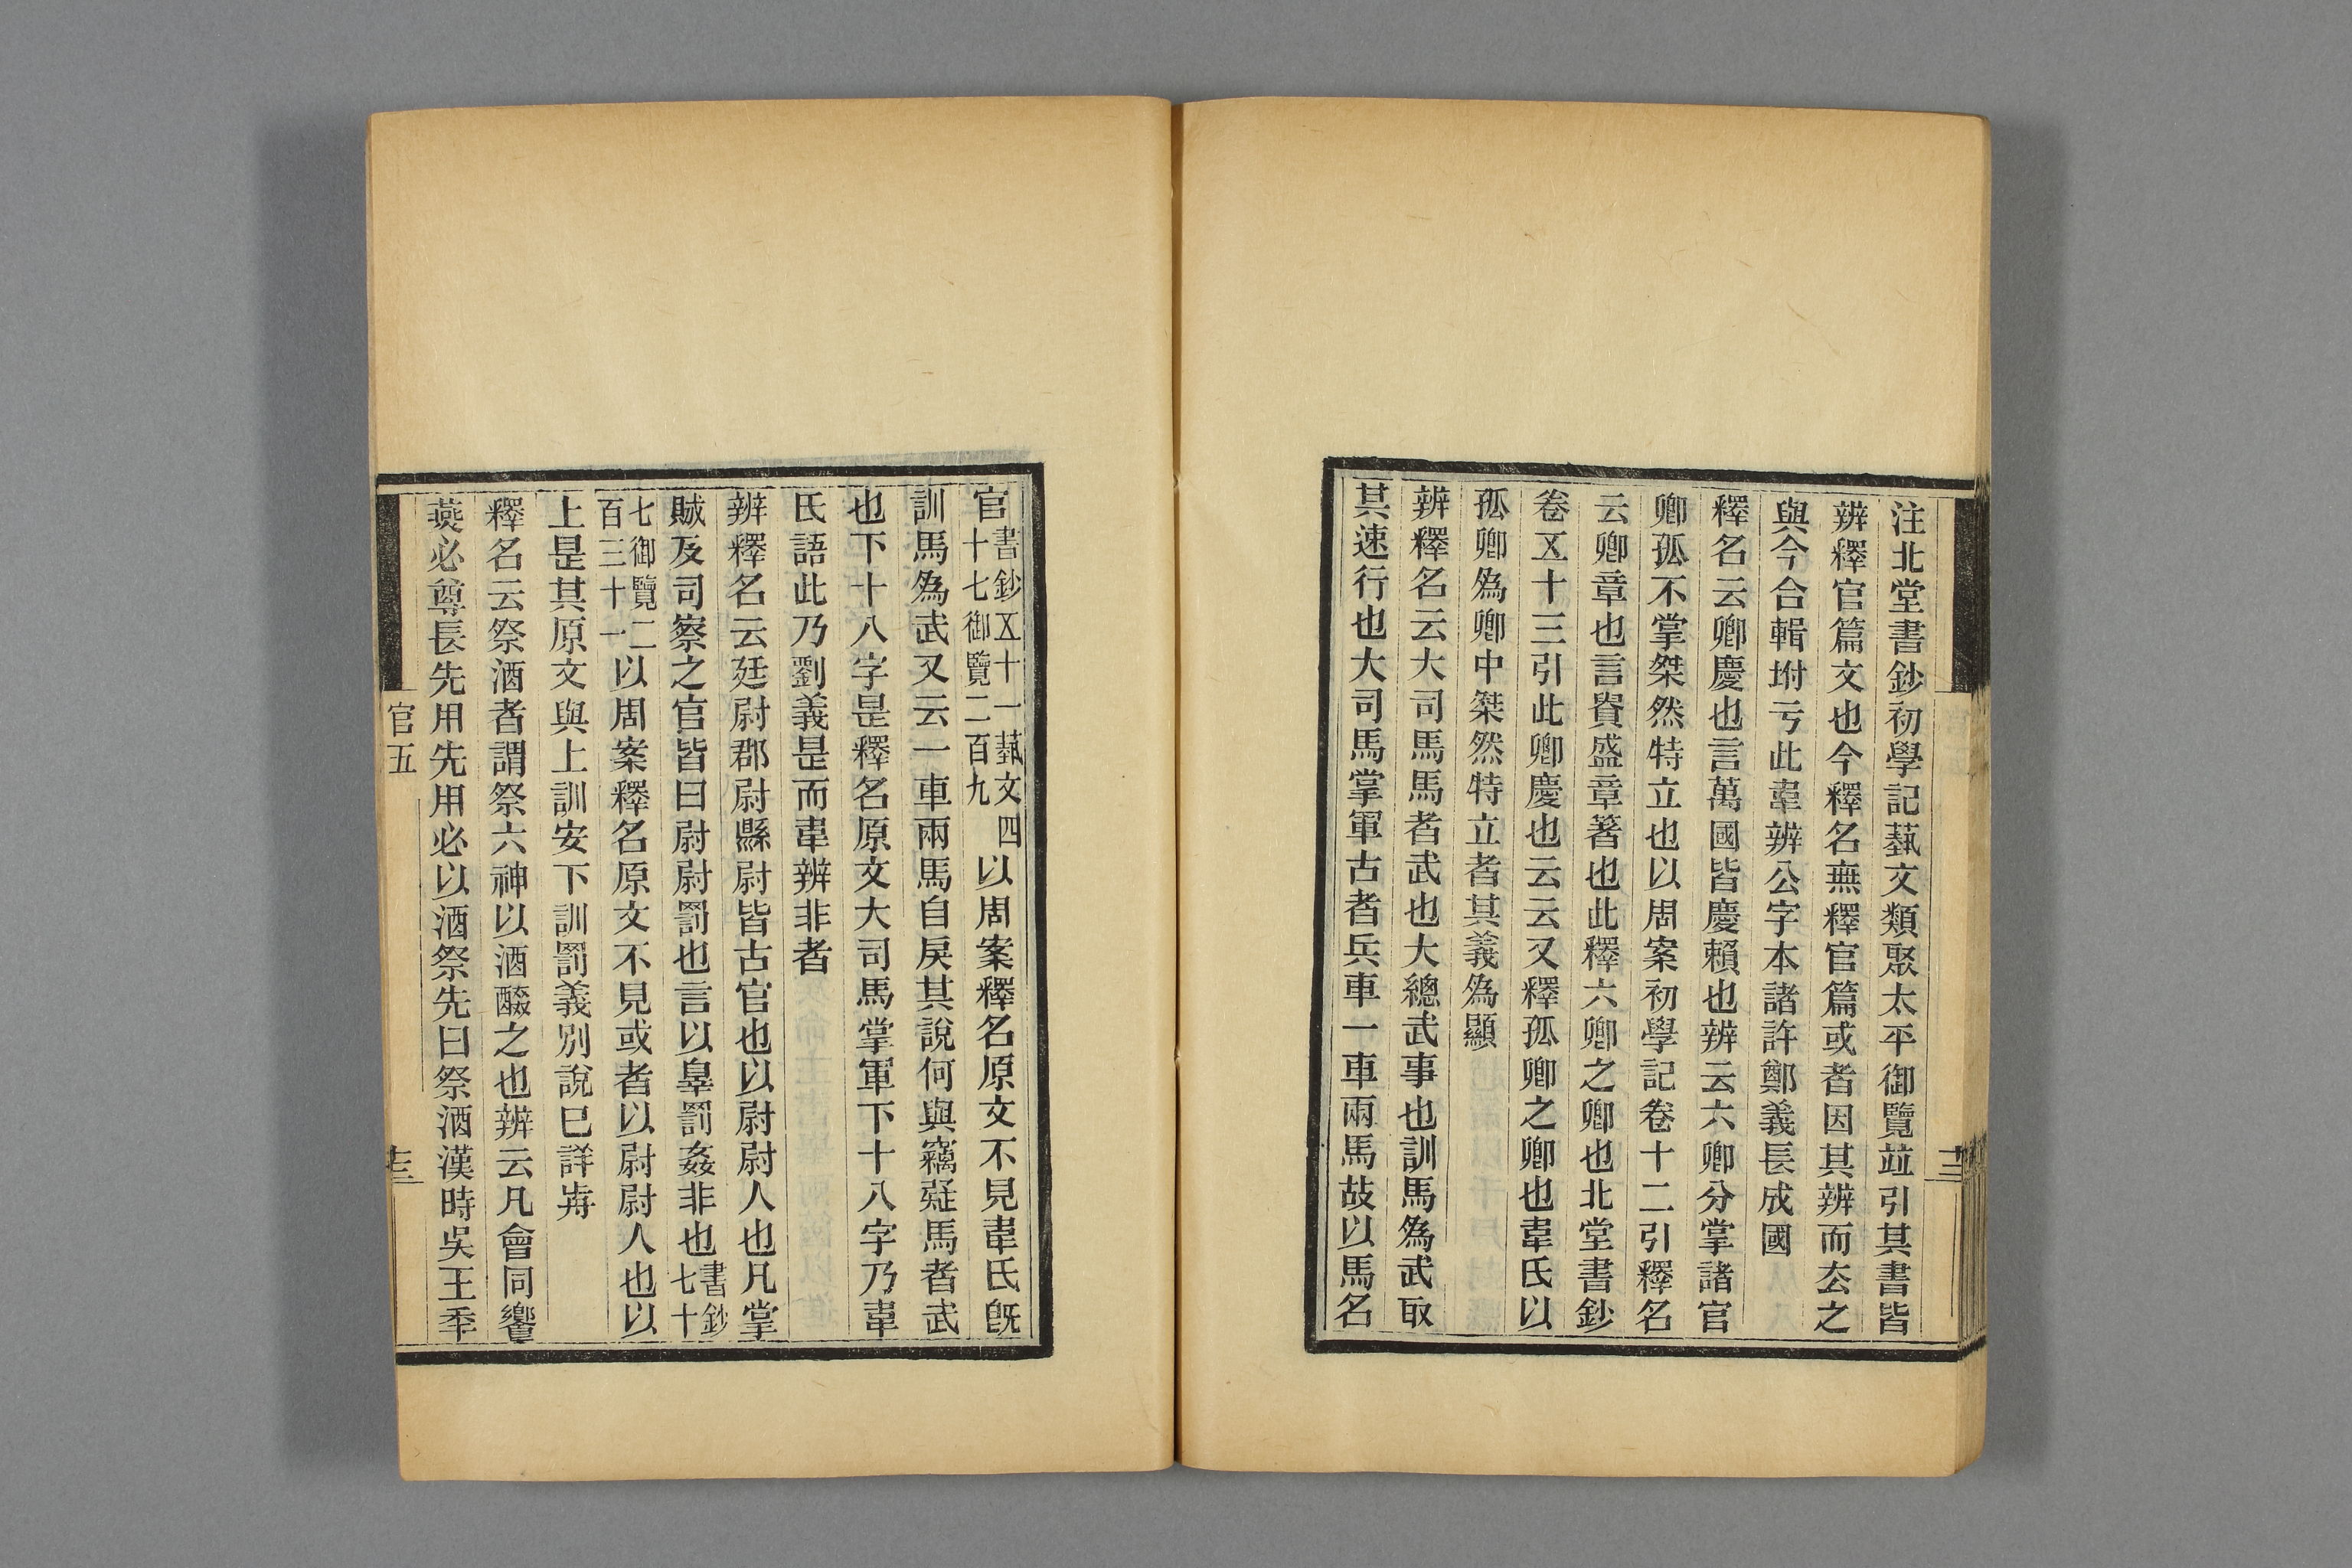 注北堂書鈔初學記蓺文類聚太平御覽竝引其書皆
辨釋官篇文也今釋名無釋官篇或者因其辨而厺之
與今合輯坿亏此韋辨公字本諸許鄭義長成國
釋名云卿慶也言萬國皆慶賴也辨云六卿分掌諸官
卿孤不掌桀然特立也以周案初學記卷十二引釋名
云卿章也言貴盛章箸也此釋六卿之卿也北堂書鈔
卷五十三引此卿慶也云云又釋孤卿之卿也韋氏以
孤卿為卿中桀然特立者其義為顯
辨釋名云大司馬馬者武也大總武事也訓馬為武取
其速行也大司馬掌軍古者兵車一車兩馬故以馬名
官書鈔五十一蓺文四十七御覽二百九以周案釋名原文不見韋氏旣
訓馬為武又云一車兩馬自戾其說何與竊疑馬者武
也下十八字是釋名原文大司馬掌軍下十八字乃韋
氏語此乃劉義是而韋辨非者
辨釋名云廷尉郡尉縣尉皆古官也以尉尉人也凡掌
賊及司察之官皆曰尉尉罰也言以辠罰姦非也書鈔七十
七御覽二百三十一以周案釋名原文不見或者以尉尉人也以
上是其原文與上訓安下訓罰義別說巳詳歬
釋名云祭酒者謂祭六神以酒醶之也辨云凡會同饗
燕必尊長先用先用必以酒祭先曰祭酒漢時吳王秊
官五
十三